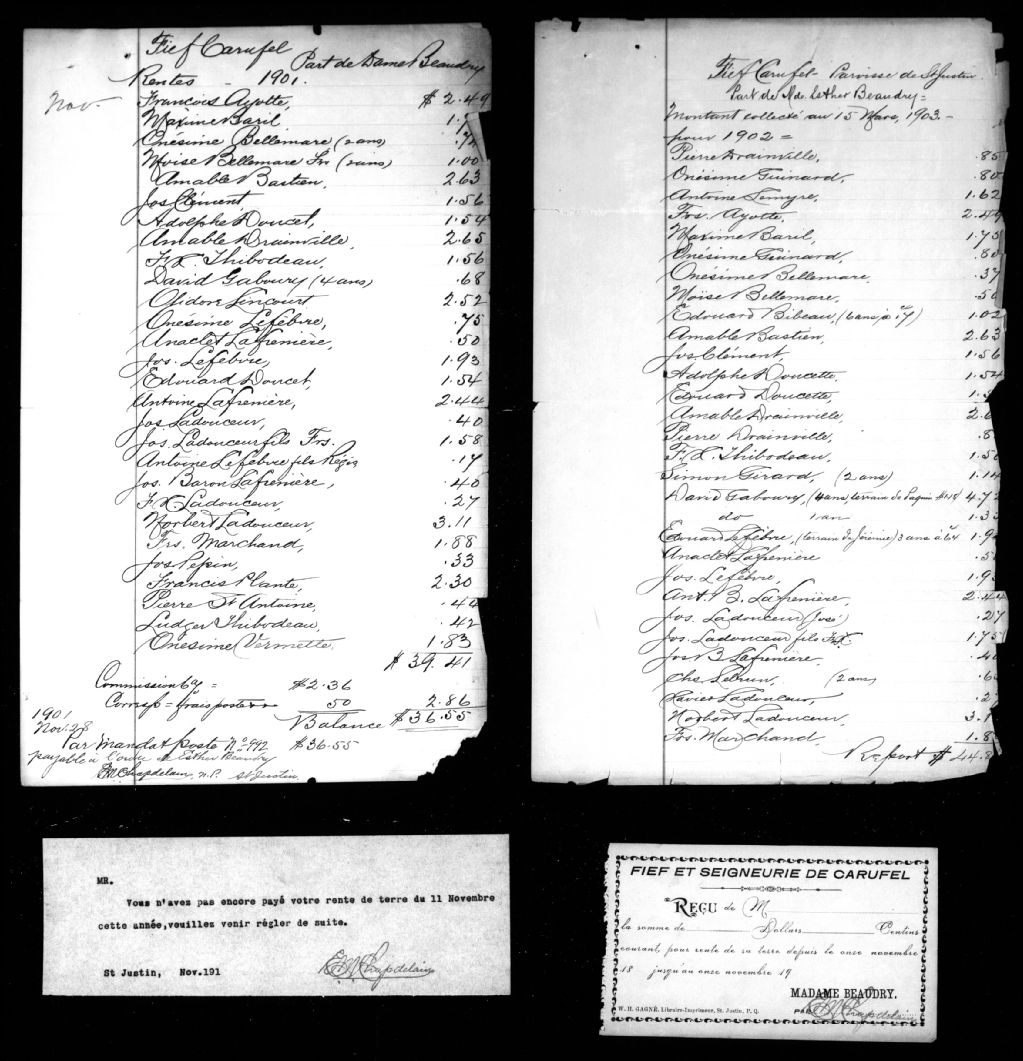 Fief Carufel
Part de Dame Beaudry
Rentes - 1901.
Nov.
Francois Ayotte, $ 2.49
Maxime Baril 1.7
Onésime Bellemare (2 ans) .74
Moise Bellemare Sr (2 ans) 1.00
Amable Bastien, 2.63
Jos Clément, 1.56
Adolphe Doucet, 1.54
Amable Drainville, 2.65
F X Thibodeau, 1.56
David Gaboury (4 ans) .68
Olidore Lincourt 2.52
Onésime Lefebvre, .75
Anaclet Lafrenière, .50
Jos. Lefebvre, 1.93
Edouard Doucet, 1.54
Antoine Lafrenière, 2.44
Jos Ladouceur, .40
Jos. Ladouceur fils Frs. 1.58
Antoine Lefebvre fils Régis .17
Jos. Baron Lafrenière, .40
F X Ladouceur, .27
Norbert Ladouceur, 3.11
Frs. Marchand, 1.88
Jos Pepin, .33
Francis Plante, 2.30
Pierre St Antoine, .44
Ludger Thibodeau, .42
Onesime Vermette. 1.83
$ 39.41
Commission 6% = $2.36
Corresp = frais poste 50 2.86
Balance $36.55
1901
Nov. 28
Par mandat poste No 992 $36.55
payable à l'ordre de Esther Beaudry
EM Chapdelain, n.p. St Justin.
Fief Carufel - Paroisse de St Justin
Part de Mde. Esther Beaudry =
Montant collecté au 15 Mars, 1903. -
pour 1902 =
Pierre Drainville, .85
Onésime Guinard, .80
Antoine Lemyre, 1.62
Frs. Ayotte, 2.49
Maxime Baril, 1.75
Onésime Guinard, .80
Onésime Bellemare, .37
Moïse Bellemare, .50
Edouard Bibeau, (6 ans à 17) 1.02
Amable Bastien, 2.63
Jos Clément, 1.56
Adolphe Doucette, 1.54
Edouard Doucette, 1.5
Amable Drainville, 2.6
Pierre Drainville, .8
F. X. Thibodeau, 1.56
Simon Girard, (2 ans) 1.14
David Gaboury, (4 ans, terrain de Paquin $1.18 4.72
do 1 an 1.33
Edouard Lefebvre, (terrain de Jérémie) 3 ans à 64 1.92
Anaclet Lafrenière .5
Jos. Lefebvre, 1.93
Ant. B. Lafrenière, 2.44
Jos. Ladouceur (José) .27
Jos. Ladouceur fils FX. 1.75
Jos B. Lafrenière, .40
Chs. Lebrun, (2 ans) .6
Xavier Ladouceur, .27
Norbert Ladouceur, 3.1
Frs. Marchand, 1.8
Report $ 44.8
MR.
Vous n'avez pas encore payé votre rente de terre du 11 Novembre
cette année,veuillez venir régler de suite.
St Justin, Nov.191
EM Chapdelain
FIEF ET SEIGNEURIE DE CARUFEL
REÇU de M
la somme de Dollars Centins
courant, pour rente de sa terre depuis le onze novembre
18 jusqu'au onze novembre 19
MADAME BEAUDRY.
PAR EM Chapdelain
W. H. GAGNÉ, Libraire-Imprimeur, St. Justin, P. Q.